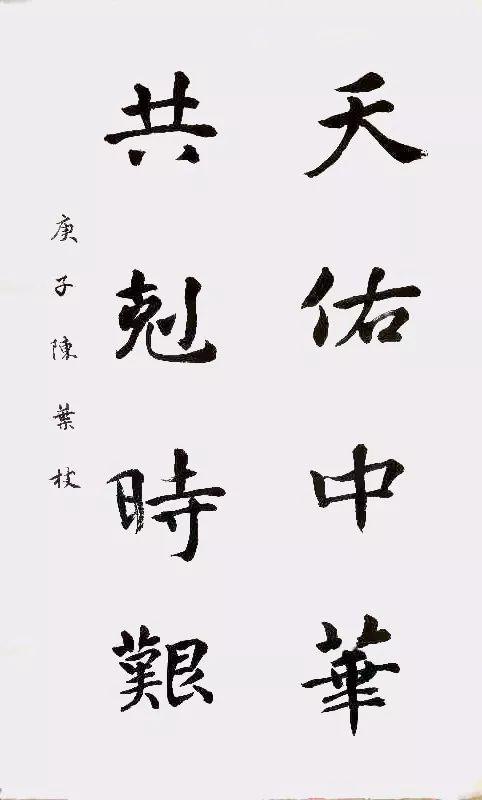 天佑中華
共剋時艱
庚子陳葉枝